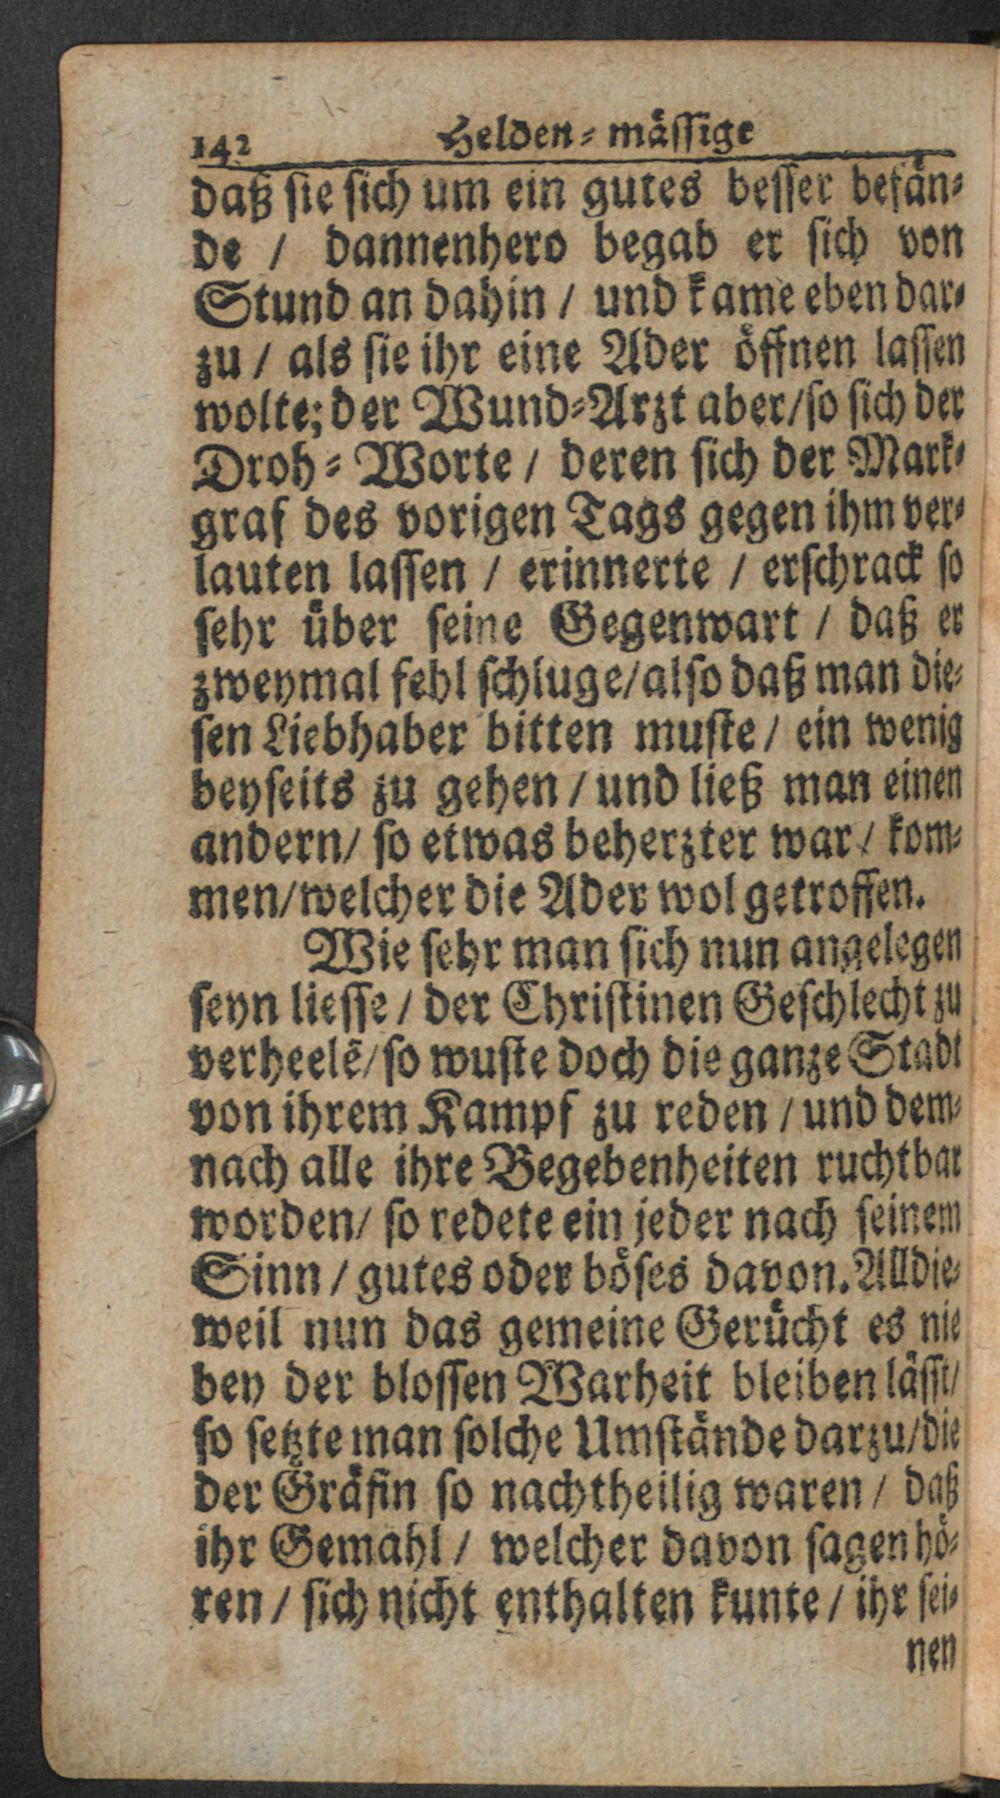 142 Helden-mässige
daß sie sich um ein gutes besser befän-
de / dannenhero begab er sich von
Stund an dahin / und kame eben dar-
zu / als sie ihr eine Ader öffnen lassen
wolte; der Wund-Arzt aber/so sich der
Droh-Worte / deren sich der Mark-
graf des vorigen Tags gegen ihm ver-
lauten lassen / erinnerte / erschrack so
sehr über seine Gegenwart / daß er
zweymal fehl schluge/also daß man die-
sen Liebhaber bitten muste / ein wenig
beyseits zu gehen / und ließ man einen
andern/ so etwas beherzter war / kom-
men/welcher die Ader wol getroffen.
Wie sehr man sich nun angelegen
seyn liesse / der Christinen Geschlecht zu
verheelẽ/so wuste doch die ganze Stadt
von ihrem Kampf zu reden / und dem-
nach alle ihre Begebenheiten ruchtbar
worden/ so redete ein jeder nach seinem
Sinn / gutes oder böses davon. Alldie-
weil nun das gemeine Gerücht es nie
bey der blossen Warheit bleiben lässt/
so setzte man solche Umstände darzu/die
der Gräfin so nachtheilig waren / daß
ihr Gemahl / welcher davon sagen hö-
ren / sich nicht enthalten kunte / ihr sei-
nen